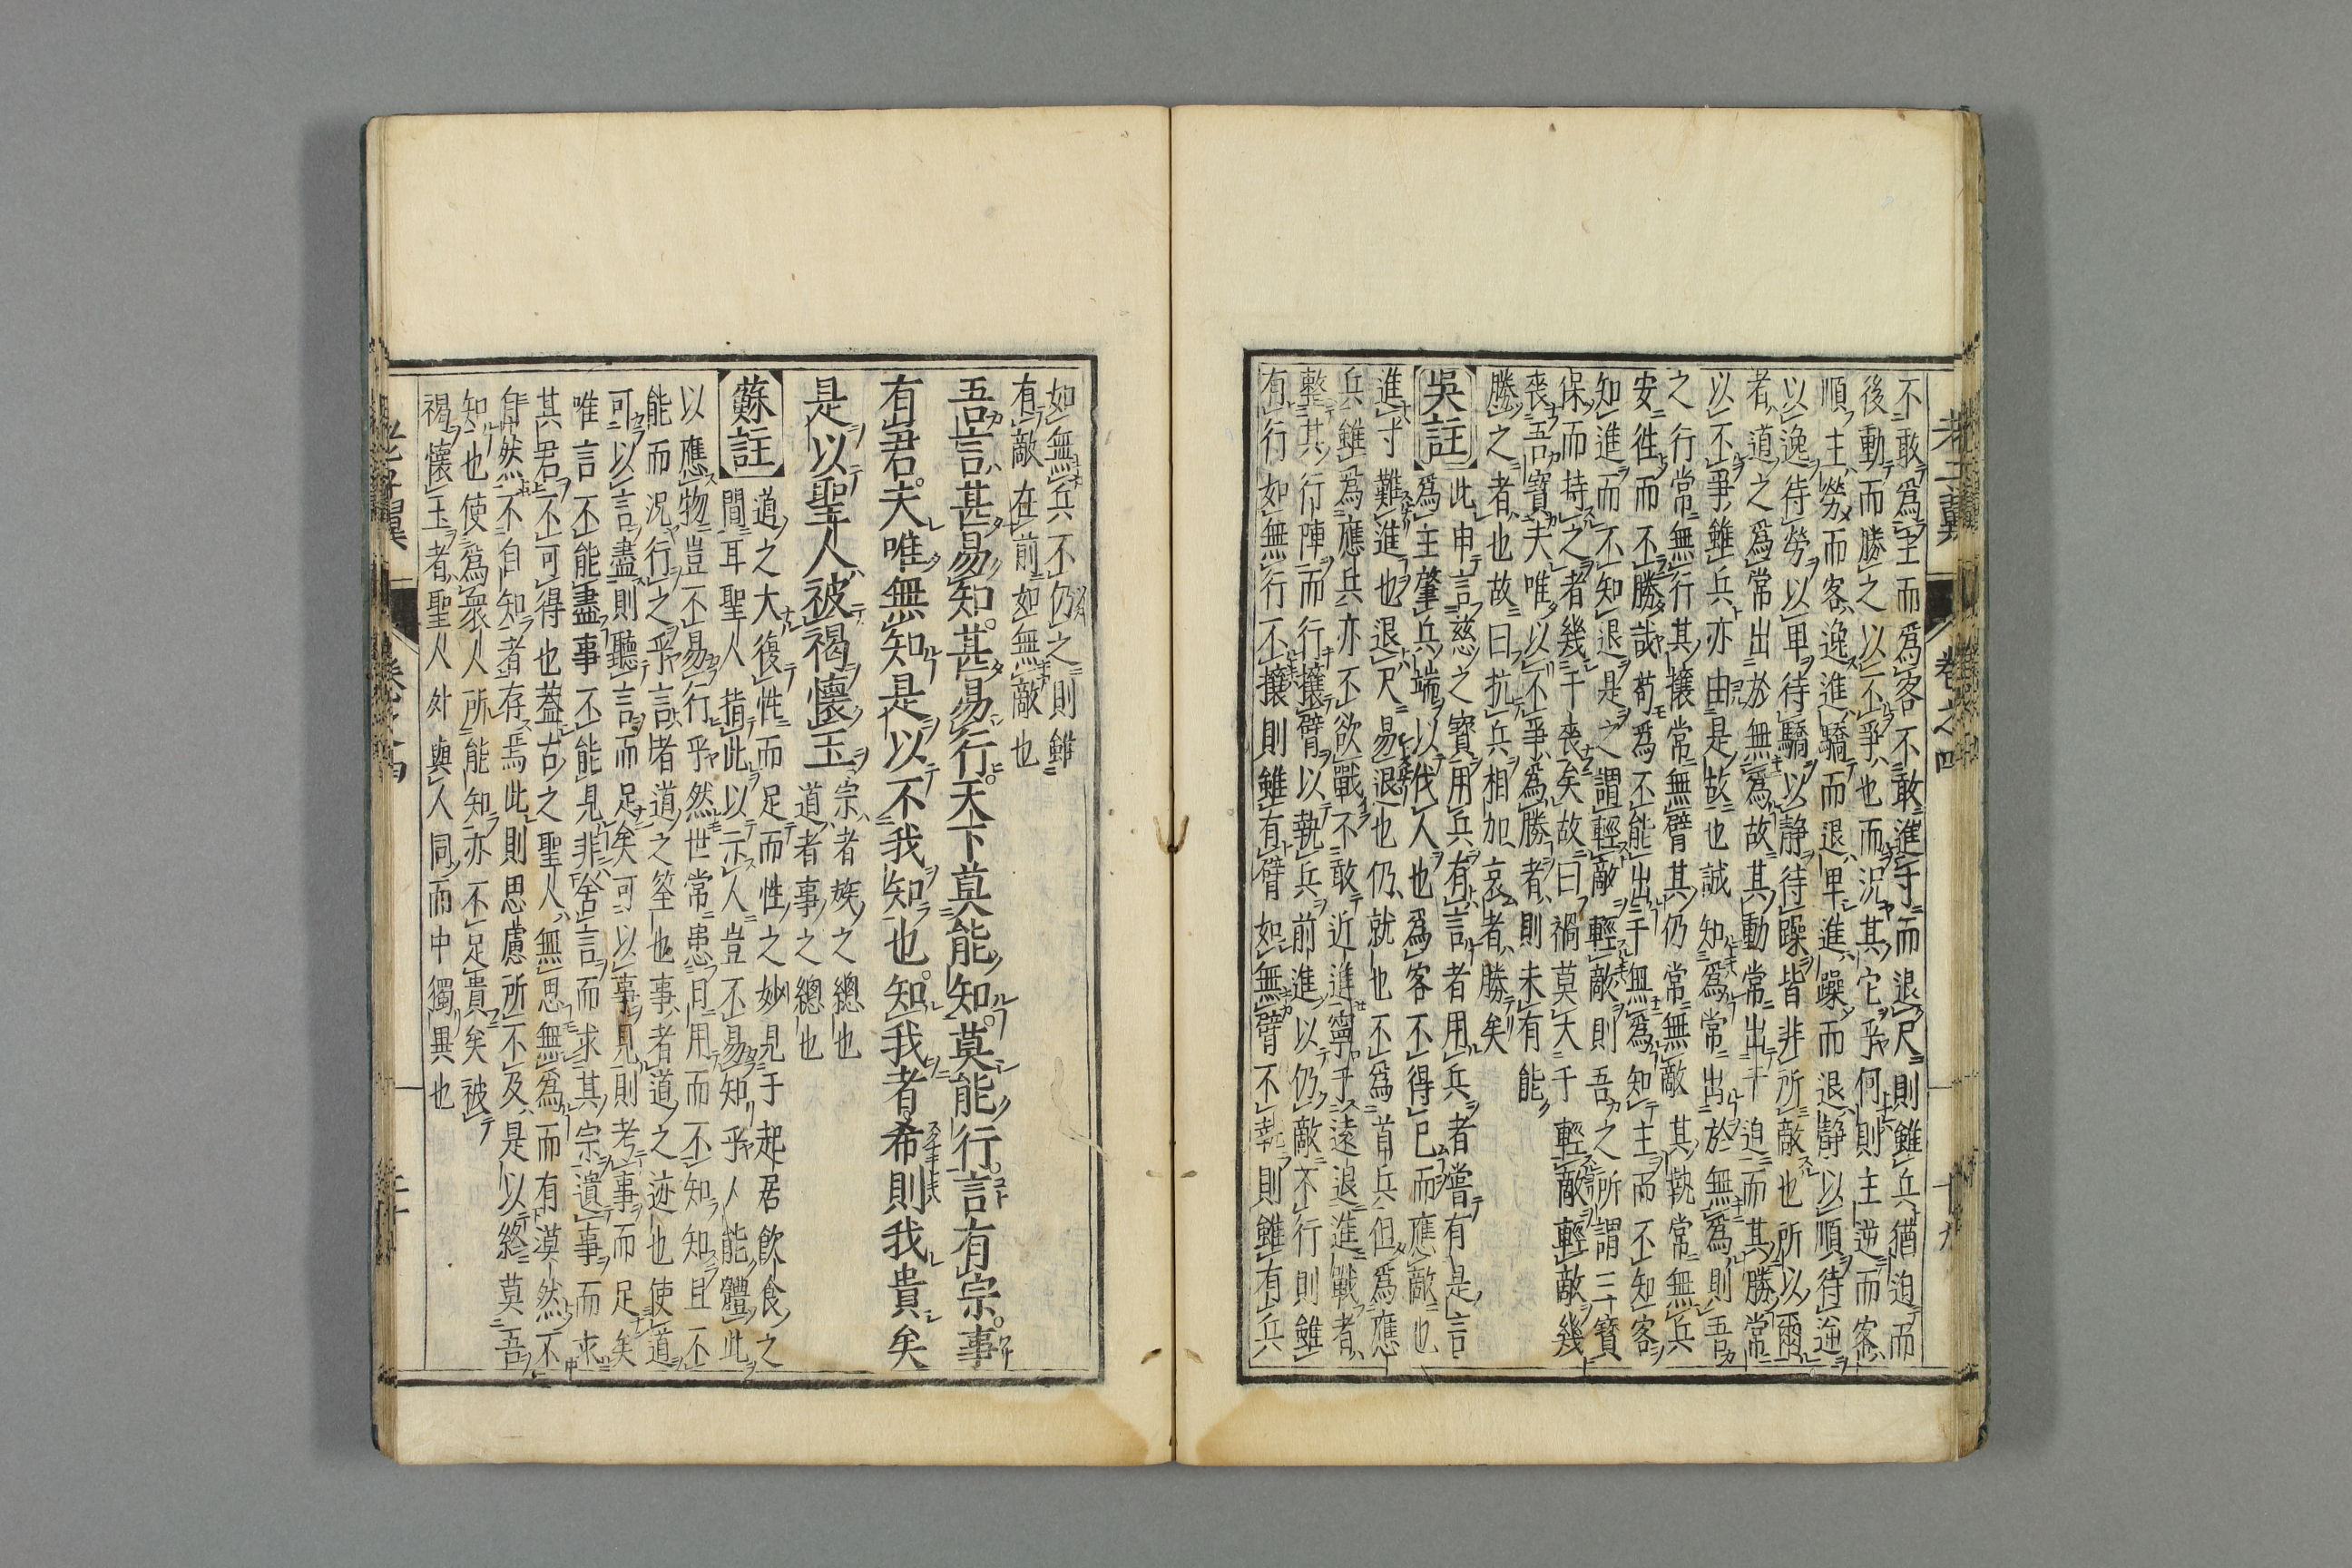 不敢爲主而爲客不敢進寸而退尺則雖兵猶迫而
後動而勝之以不爭也而況其它乎何則主逆而客
順主勞而客逸進驕而退卑進躁而退靜以順待逆
以逸待勞以卑待驕以靜待躁皆非所敵也所以爾
者道之爲常出於無爲故其動常出于迫而其勝常
以不爭雖兵亦由是故也誠知爲常出於無爲則吾
之行常無行其攘常無臂其仍常無敵其執常無兵
安徃而不勝誠苟爲不能出于無爲知主而不知客
知進而不知退是之謂輕敵輕敵則吾之所謂三寳
保而持之者幾于喪矣故曰禍莫大于輕敵輕敵幾
喪吾寳夫唯以不爭爲勝者則未有能
勝之者也故曰抗兵相加哀者勝矣
吳註
此申言慈之寳用兵有言者用兵者嘗有是言
爲主肇兵端以伐人也爲客不得已而應敵也
進寸難進也退尺易退也仍就也不爲首兵但爲應
兵雖爲應兵亦不欲戰不敢近進寧乎遠退進戰者
整其行陣而行攘臂以執兵前進以仍敵不行則雖
有行如無行不攘則雖有臂如無臂不執則雖有兵
如無兵不仍之則雖
有敵在前如無敵也
吾言甚易知甚易行天下莫能知莫能行言有宗事
有君夫唯無知是以不我知也知我者希則我貴矣
是以聖人被褐懷玉
宗者族之總也
道者事之總也
蘇註
道之大復性而足而性之妙見于起居飲食之
間耳聖人指此以示人豈不易知乎人能體此
以應物豈不易行乎然世常患日用而不知知且不
能而況行之乎言者道之筌也事者道之迹也使道
可以言盡則聽言而足矣可以事見則考事而足矣
唯言不能盡事不能見非舍言而求其宗遺事而求
其君不可得也葢古之聖人無思無爲而有漠然不
自然不自知者存焉此則思慮所不及是以終莫吾
知也使爲衆人所能知亦不足貴矣被
褐懷玉者聖人外與人同而中獨異也
老子翼
卷之四
十九